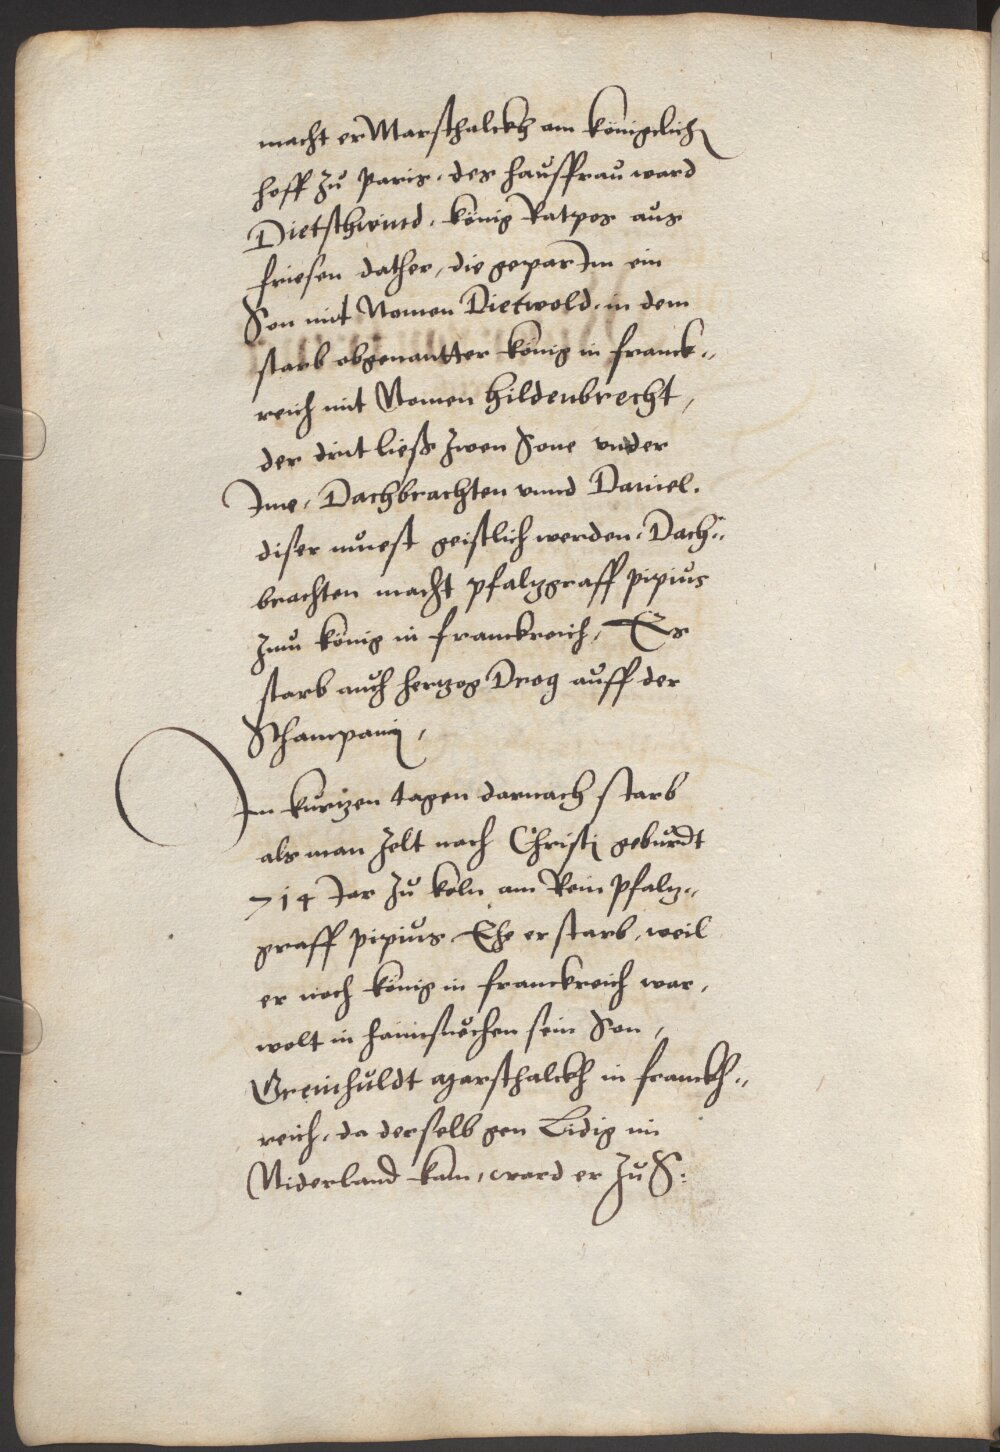 macht er Marschalckh am königclich
hoff zů Paris, des hausfrau ward
Dietschwind, könig Ratpos aus
friesen dother, die gepar Im ein
Son mit Namen Dietwold, in dem
starb obgenantter könig in franck„
reich mit Namen Hildenbrecht,
der drit ließ zwen Sone under
Ime, Dachbrachten unnd Daniel.
diser můest geistlich werden, Dach„
brachten macht pfaltzgraff pipius
zum könig in franckreich, Es
starb auch hertzog Drog auff der
Schampani,
In kurtzen tagen darnach starb
als man zelt nach Christi geburdt
714 Jar zů köln am Rein Pfaltz„
graff pipius, Ehe er starb, weil
er noch könig in franckreich war,
wolt in haimsuechen sein Son,
Greinhuldt Marschalckh in franckh„
reich, da derselb gen Lidig im
Niderland kam, ward er zů S: